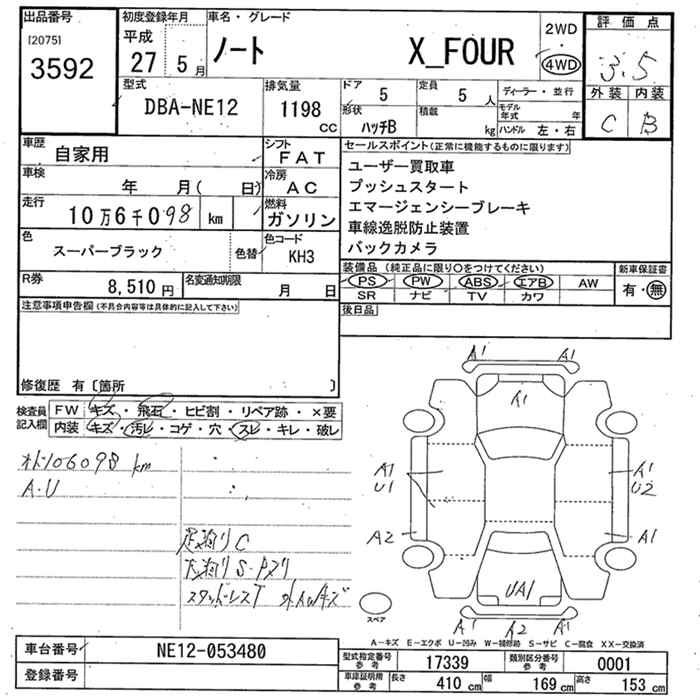 出品番号
[2075]
3592
初度登録年月
平成
27 5月
車名・グレード
ノート X_FOUR
2WD
・
4WD
評価点
3.5
外装 内装
C B
型式
DBA-NE12
排気量
1198
cc
ドア 5
形状 ハッチB
定員 5 人
積載 kg
ディーラー・並行
モデル年式 年
ハンドル 左・右
車歴
自家用
シフト
FAT
車検
年 月( 日)
冷房
AC
走行
10万6千098 km
燃料
ガソリン
色
スーパーブラック
色替
色コード
KH3
R券
8,510円
名変通知期限
月 日
セールスポイント(正常に機能するものに限ります)
ユーザー買取車
プッシュスタート
エマージェンシーブレーキ
車線逸脱防止装置
バックカメラ
装備品(純正品に限り○をつけてください)
PS PW ABS エアB AW
SR ナビ TV カワ
新車保証書
有・無
後日品
注意事項申告欄(不具合内容等は具体的に記入して下さい)
修復歴 有〔箇所 〕
検査員
記入欄
FW キズ・飛石・ヒビ割・リペア跡・×要
内装 キズ・汚レ・コゲ・穴・スレ・キレ・破レ
オド106098 km
A・U
足廻りC
下廻りS・Pヌリ
スタッドレスT
A1 A1
A1
A1
U1
A1
U2
A2
A1
UA1
A1 A2 A1
スペア
A-キズ E-エクボ U-凹み W-補修跡 S-サビ C-腐食 XX-交換済
車台番号
NE12-053480
登録番号
型式指定番号
参考
17339
類別区分番号
参考
0001
車庫証明用
参考
長さ 410 cm
幅 169 cm
高さ 153 cm